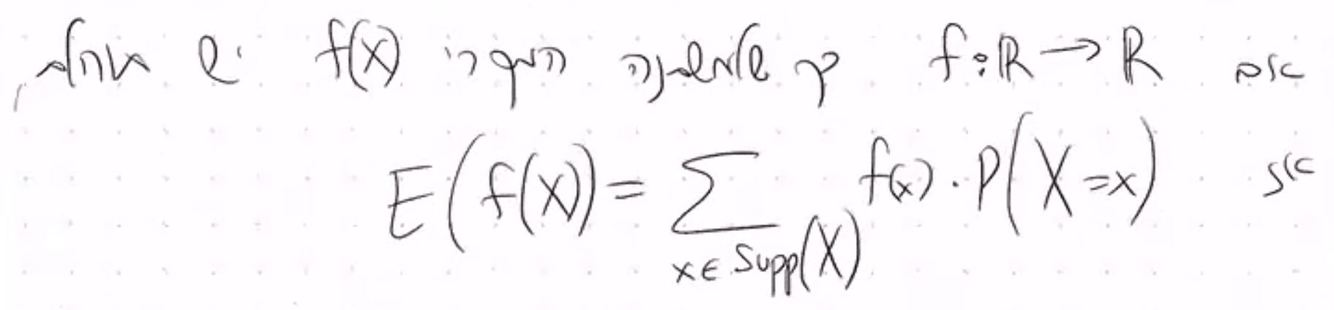 אם f:ℝ→ℝ כך שלמשתנה המקרי f(X) יש תוחלת,
אז E(f(X)) = ∑_{x∈Supp(X)} f(x)·P(X=x)